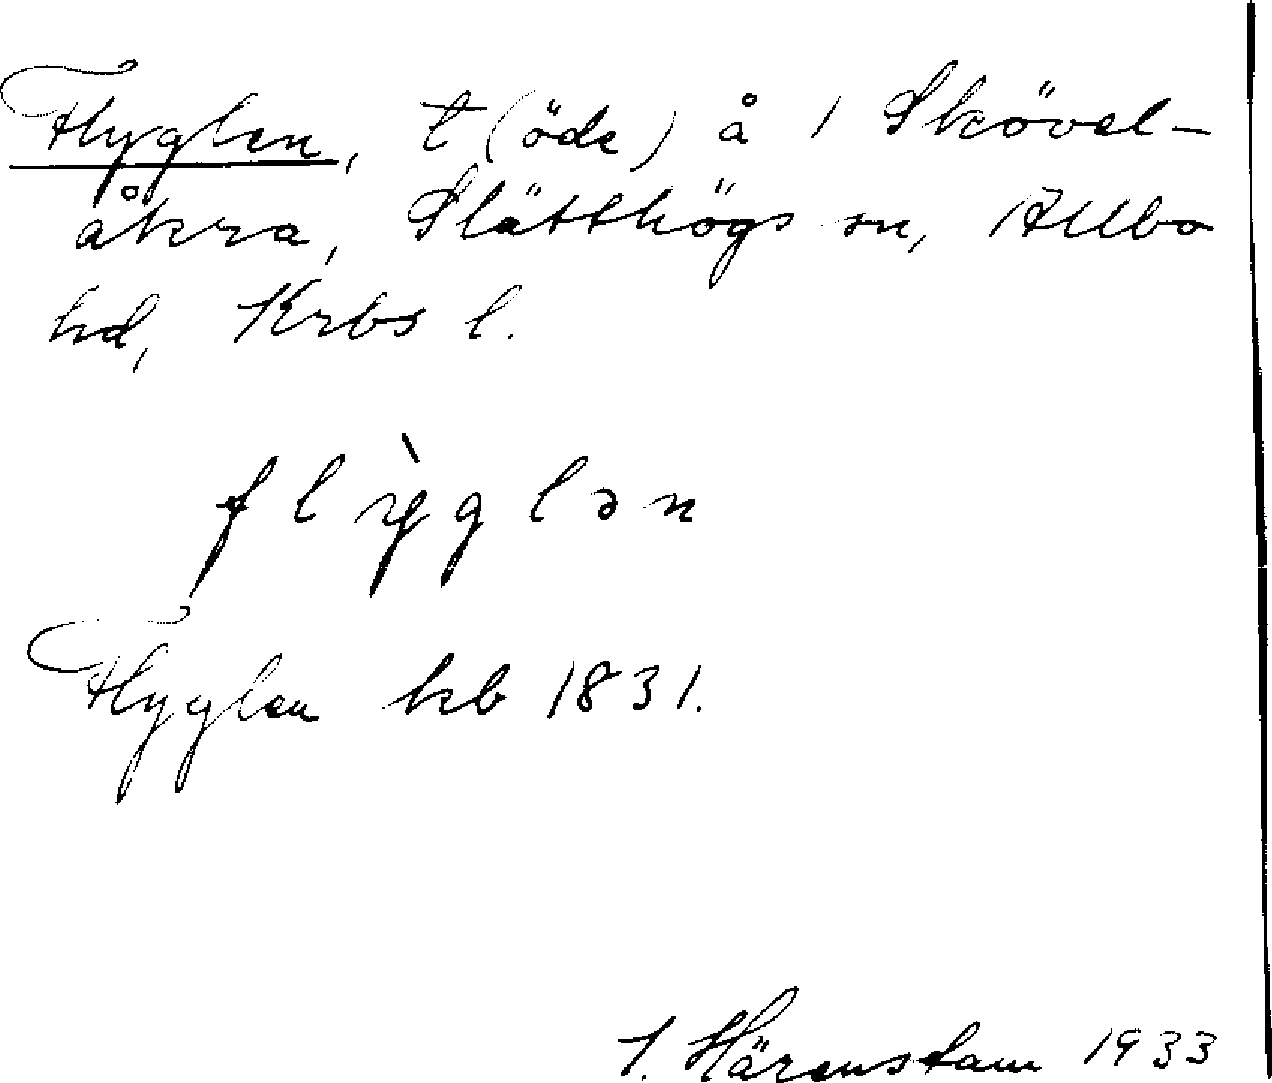 Flyglen, t (öde) å 1 Skövel-
åkra, Slätthögs sn, Allbo
hd, Krbs l.
flỳglən
Flyglen kb 1831.
I. Härenstam 1933